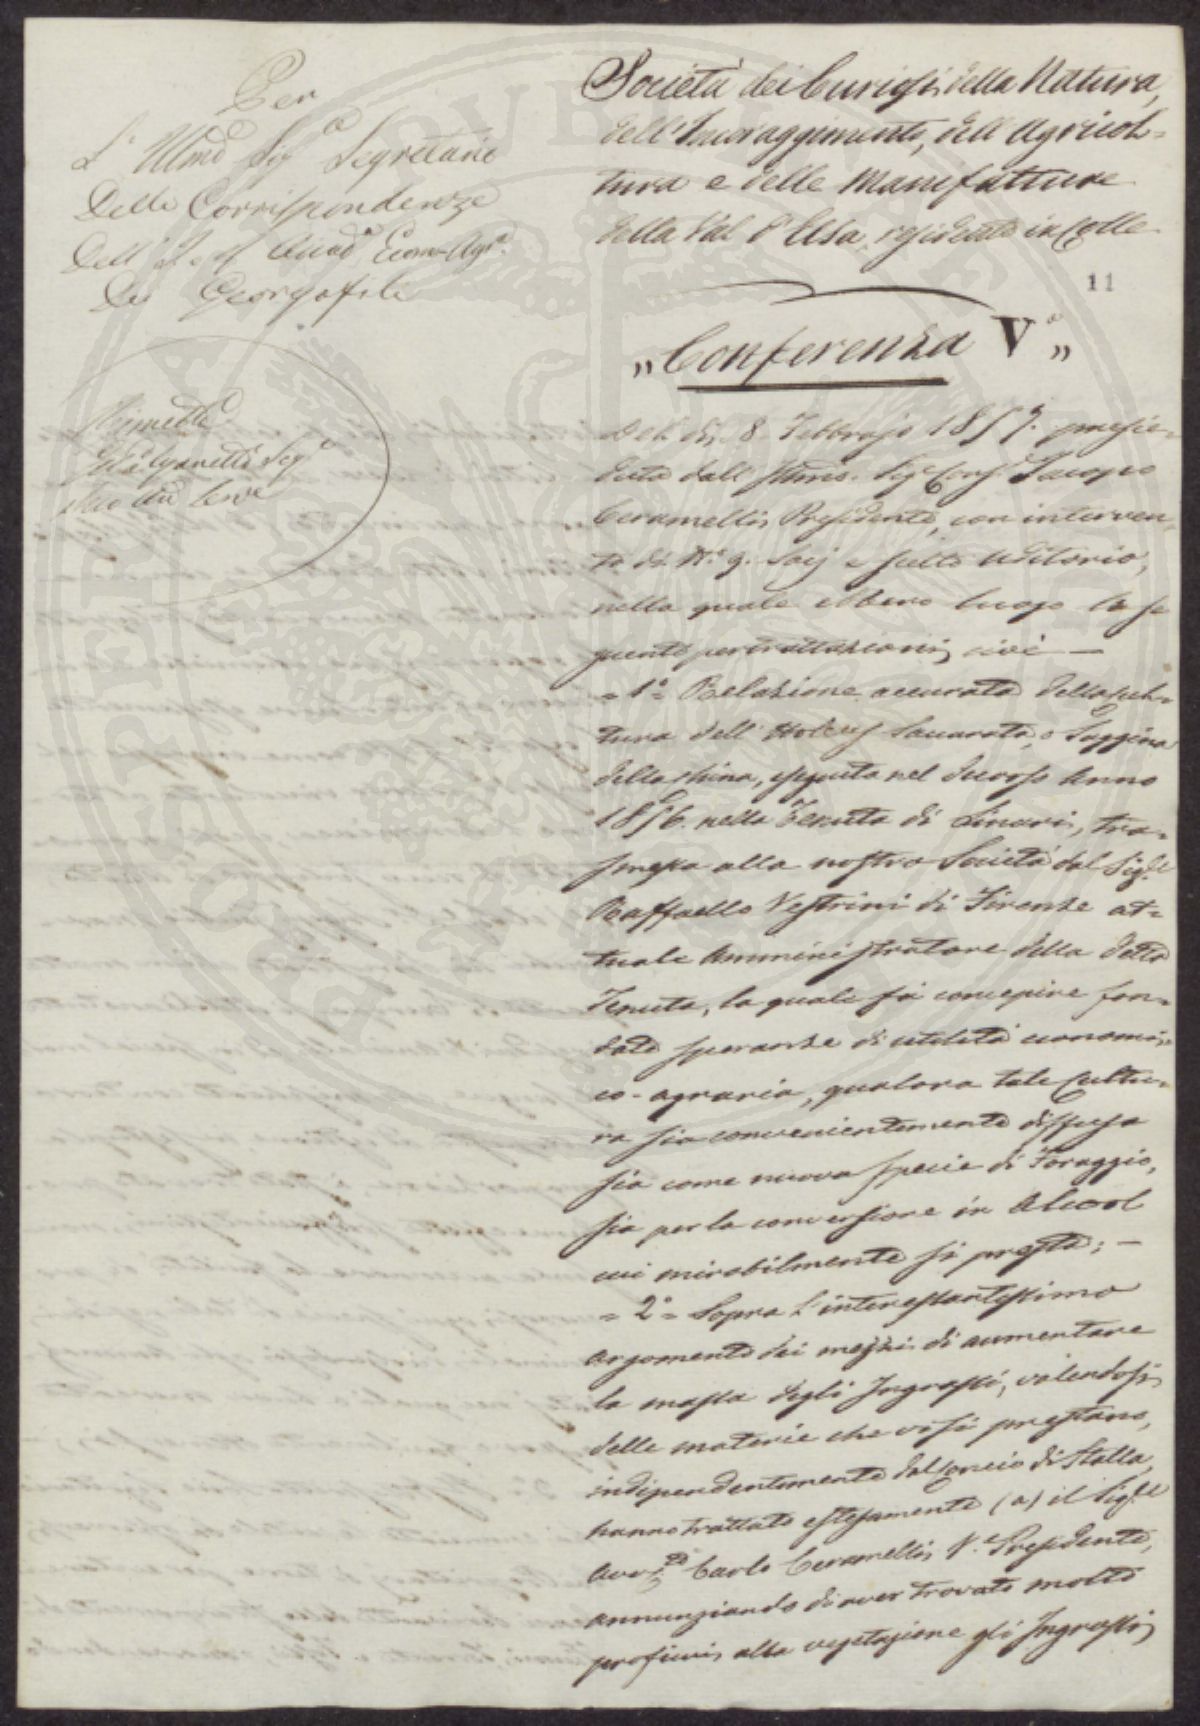 Per
L' Ill.mo Sig.r Segretario
Delle Corrispondenze
Dell' I. e R. Accad.a Econ-Agr.a
Dei Georgofili
Rimette
Seg.o
Società dei Curiosi della Natura,
dell'Incoraggimento, dell'Agricol=
tura e delle Manifatture
della Val d'Elsa, residente in Colle
11
„Conferenza V.a„
Del dì 8. Febbrajo 1857. presie=
duta dall' Illmo. Sig.r Cav.e Jacopo
Ceramelli, Presidente, con interven=
to di N.o 9. Socj e scelto uditorio,
nella quale ebbero luogo le se
guenti pertrattazioni, cioè —
= 1.o = Relazione accurata della cul=
tura dell' Holcus Saccarato, o Saggina
della China, eseguita nel decorso Anno
1856. nella Tenuta di Linari, tra=
smessa alla nostra Società dal Sig.re
Raffaello Vestrini di Firenze at=
tuale Amministratore della detta
Tenuta, la quale fà concepire fon=
date speranze di utilità economi=
co-agraria, qualora tale Cultu=
ra sia convenientemente diffusa
sia come nuova specie di Foraggio,
sia per la conversione in Alcool
cui mirabilmente si presta; —
= 2.o = Sopra l'interessantissimo
argomento dei mezzi di aumentare
la massa degli Ingrassi, valendosi
delle materie che vi si prestano,
indipendentemente dal concio di Stalla,
hanno trattato estesamente (a) il Sig.re
Avv.to Carlo Ceramelli, V.e Presidente,
annunziando di aver trovato molto
proficui, alla vegetazione gli Ingrassi,